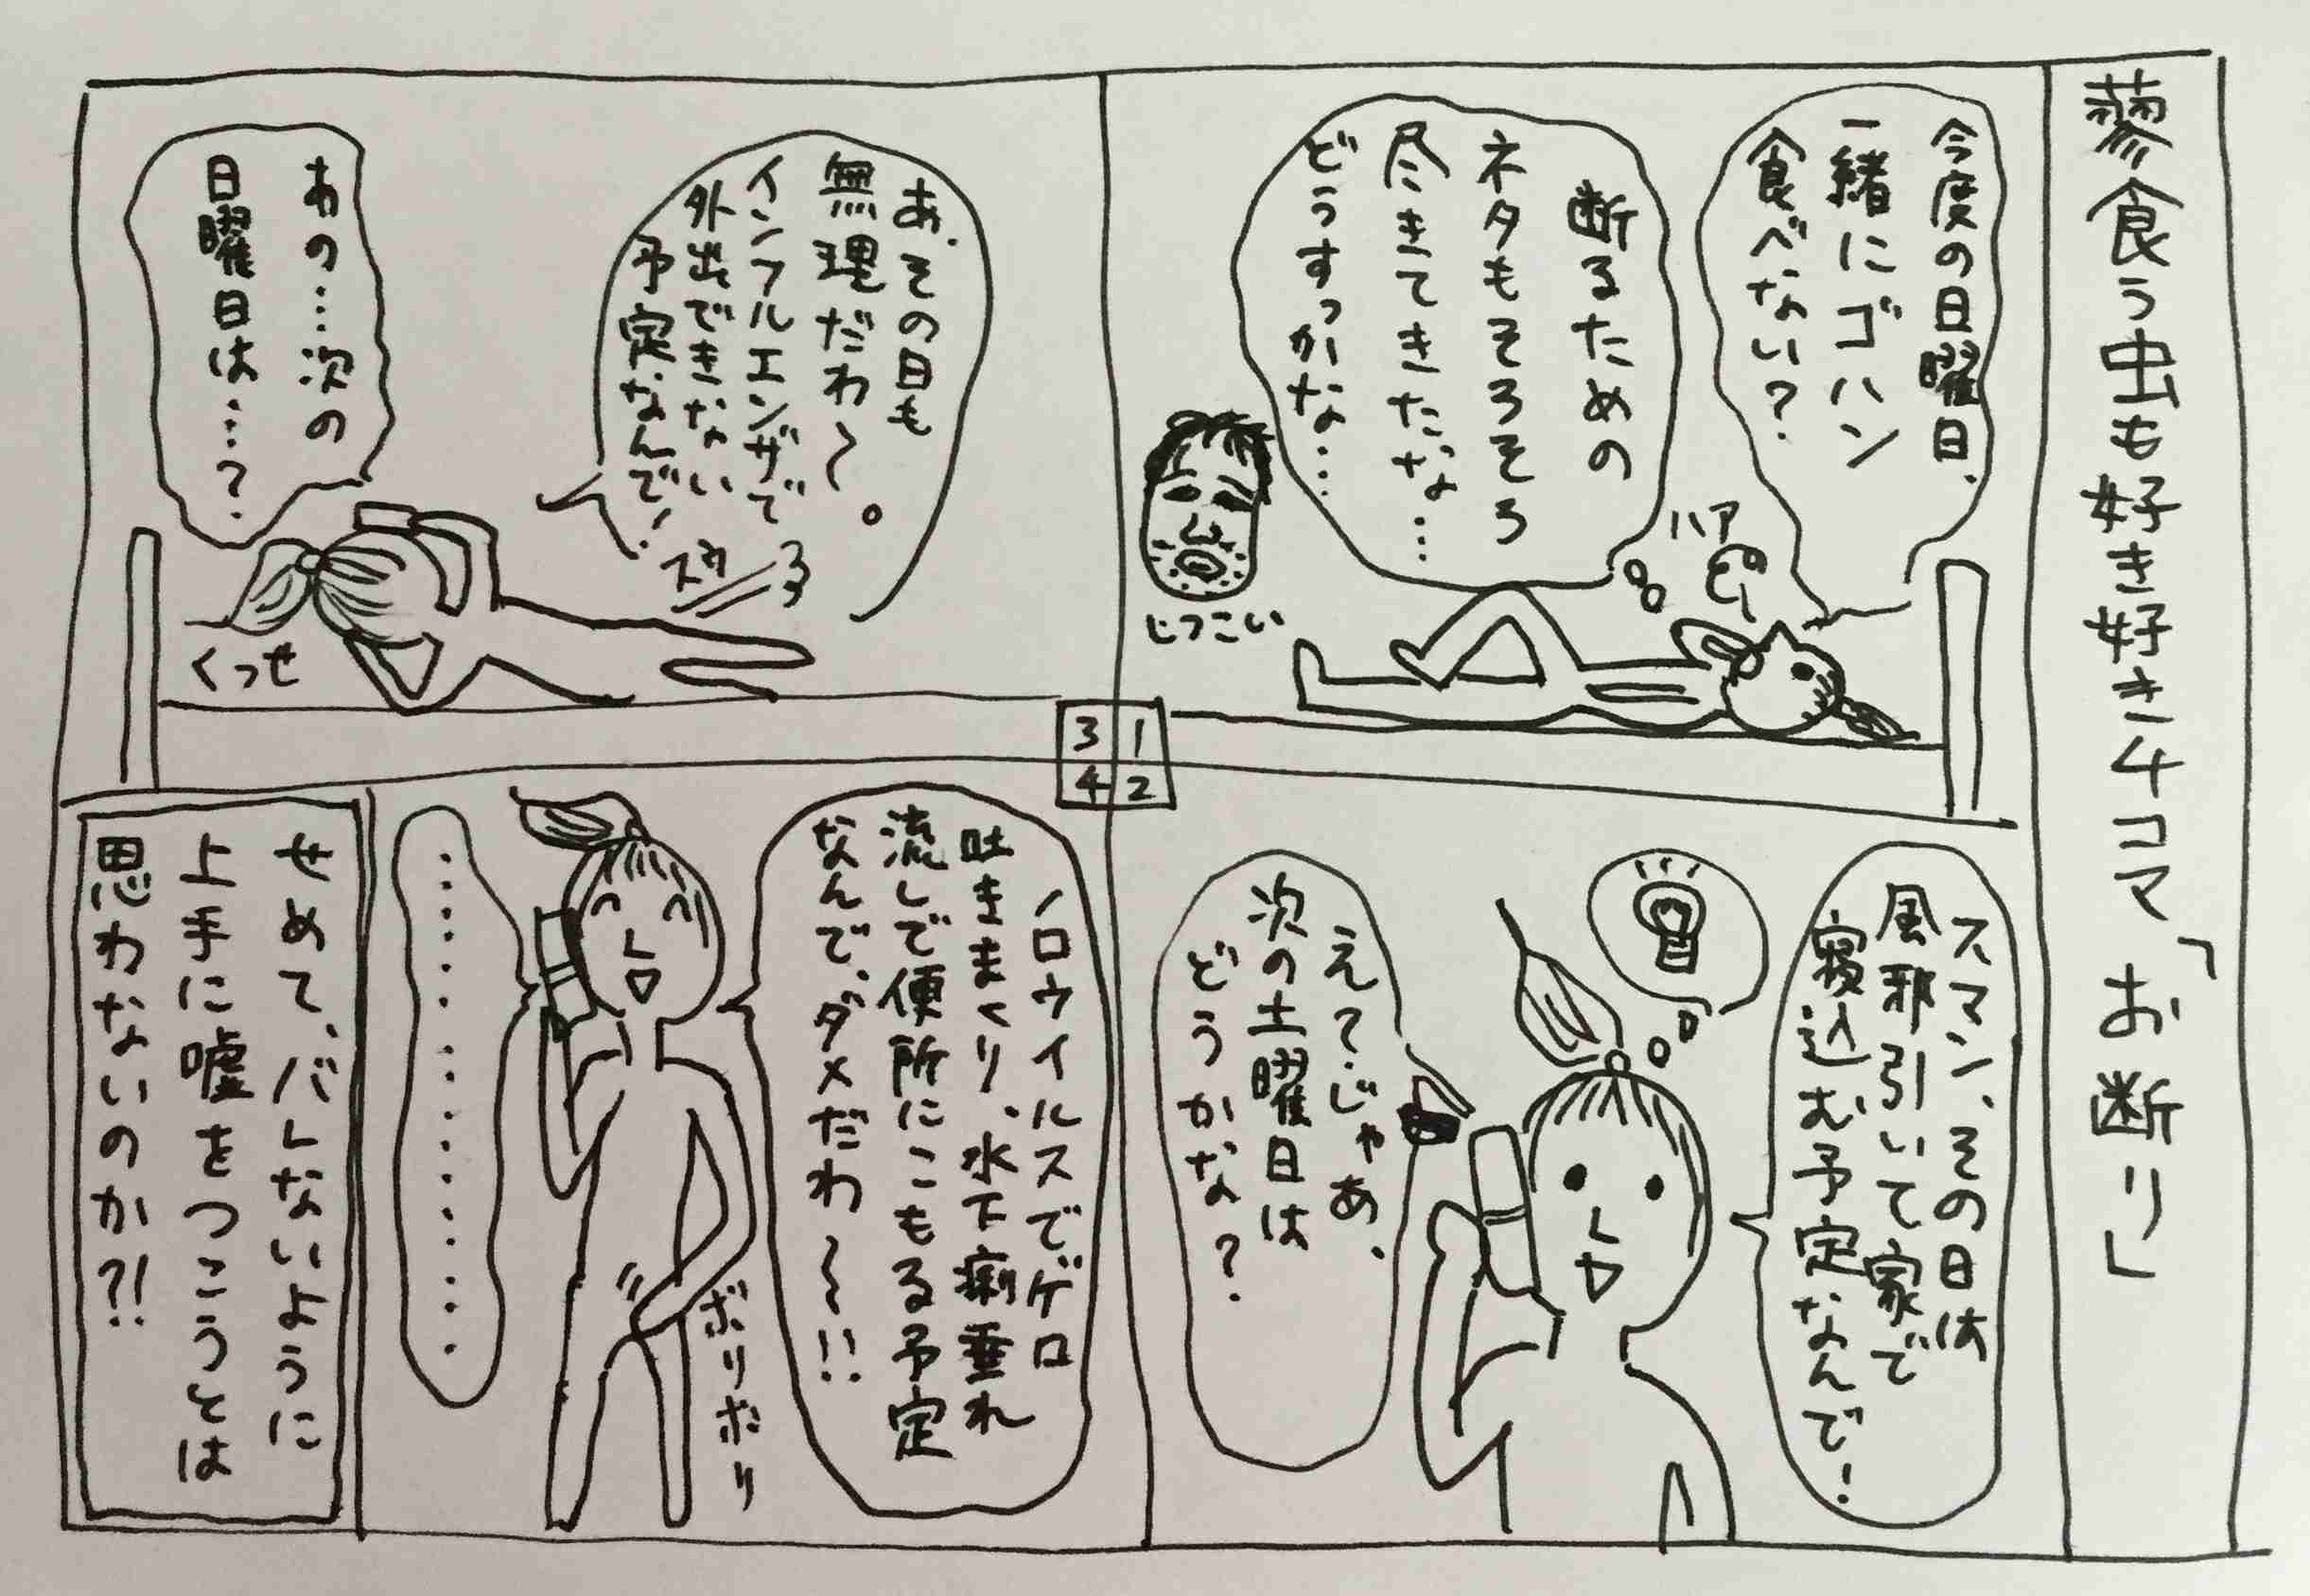 蓼食う虫も好き好き4コマ「お断り」
今度の日曜日、
一緒にゴハン
食べない?
断るための
ネタもそろそろ
尽きてきたな…
どうすっかな…
ハア
しつこい
1
2
3
4
スマン、その日は
風邪引いて家で
寝込む予定なんで!
えっ、じゃあ、
次の土曜日は
どうかな?
あ、その日も
無理だわ〜。
インフルエンザで
外出できない
予定なんで!
スカ
くっせ
あの…次の
日曜日は…?
ノロウイルスでゲロ
吐きまくり、水下痢垂れ
流しで便所にこもる予定
なんで、ダメだわ〜〜!!
ボリボリ
…………
せめて、バレないように
上手に嘘をつこうとは
思わないのか?!!